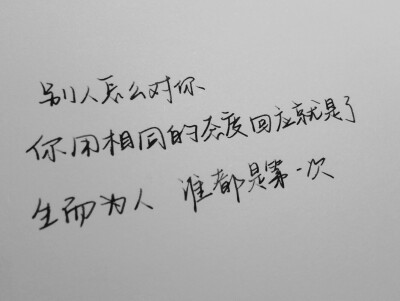 别人怎么对你
你用相同的态度回应就是了
生而为人 谁都是第一次